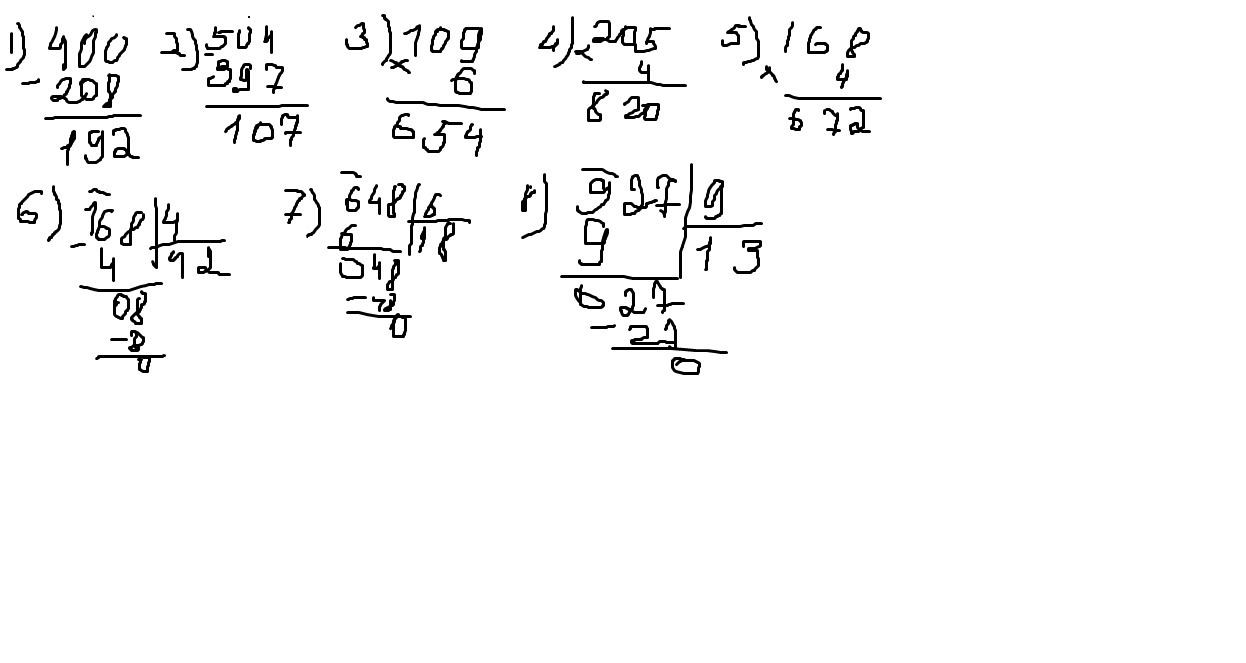 1) 400 2) 504 3) 109 4) 205 5) 168
- 208 - 397 × 6 × 4 × 4
192 107 654 820 672
6) 168 4 7) 648 6 8) 927 9
- 4 42 6 18 9 13
08 048 027
- 8 - 48 - 27
0 0 0